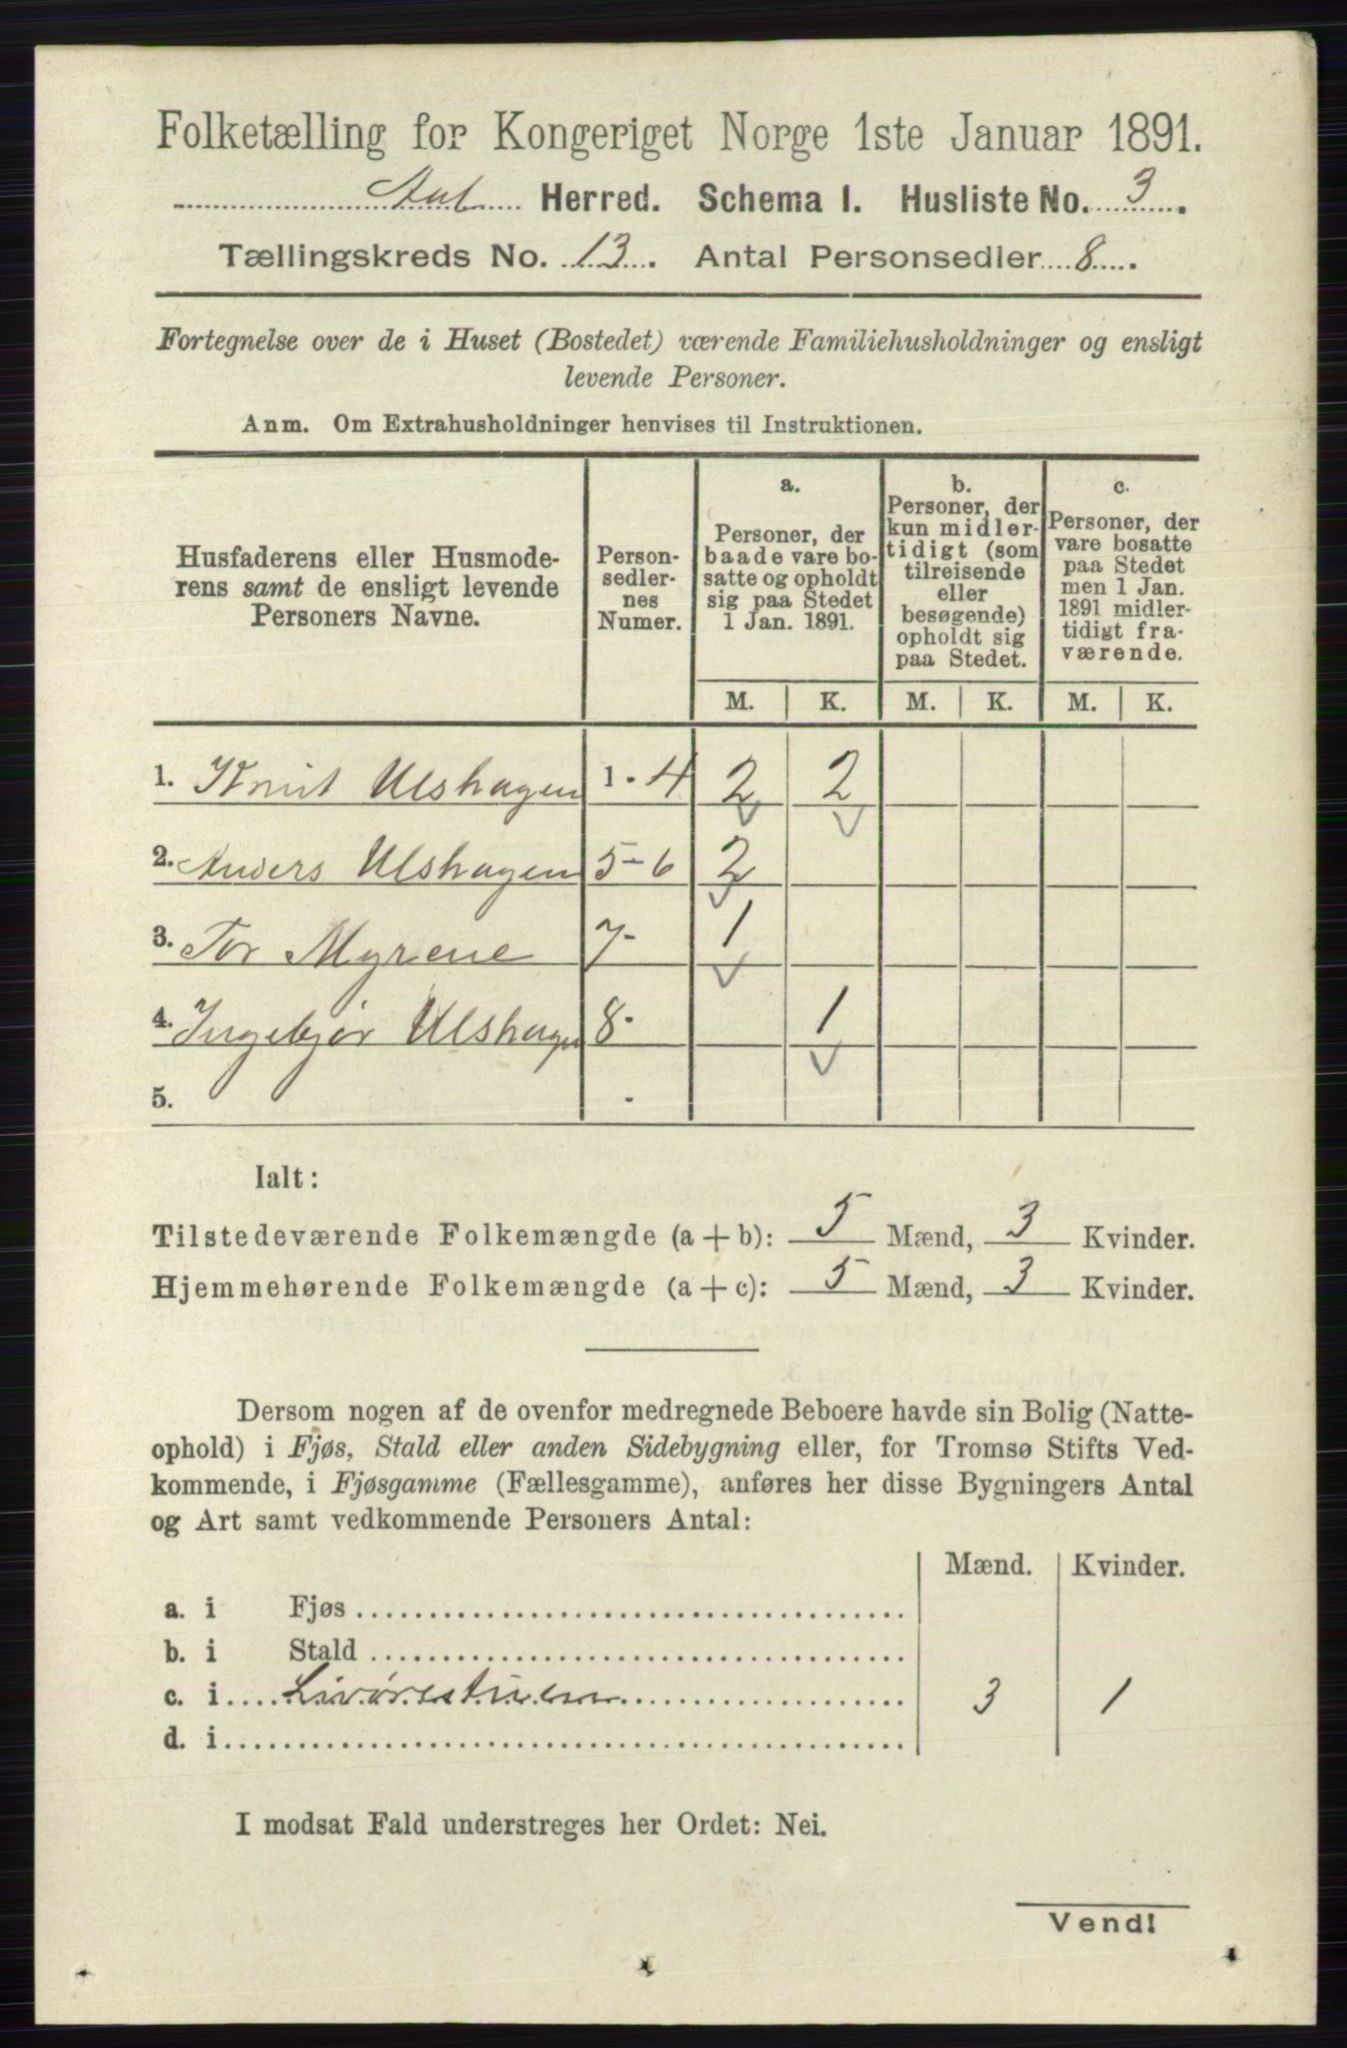 Folketælling for Kongeriget Norge 1ste Januar 1891.
Aal Herred. Schema I. Husliste No. 3.
Tællingskreds No. 13. Antal Personsedler 8.
Fortegnelse over de i Huset (Bostedet) værende Familiehusholdninger og ensligt
levende Personer.
Anm. Om Extrahusholdninger henvises til Instruktionen.
Husfaderens eller Husmode-
rens samt de ensligt levende
Personers Navne.
Person-
sedler-
nes
Numer.
a.
Personer, der
baade vare bo-
satte og opholdt
sig paa Stedet
1 Jan. 1891.
b.
Personer, der
kun midler-
tidigt (som
tilreisende
eller
besøgende)
opholdt sig
paa Stedet.
c.
Personer, der
vare bosatte
paa Stedet
men 1 Jan.
1891 midler-
tidigt fra-
værende.
M. K. M. K. M. K.
1. Knut Ulshagen 1-4 2 2
2. Anders Ulshagen 5-6 2
3. Tor Myrene 7- 1
4. Ingebjør Ulshagen 8- 1
5. -
Ialt:
Tilstedeværende Folkemængde (a + b): 5 Mænd, 3 Kvinder.
Hjemmehørende Folkemængde (a + c): 5 Mænd, 3 Kvinder.
Dersom nogen af de ovenfor medregnede Beboere havde sin Bolig (Natte-
ophold) i Fjøs, Stald eller anden Sidebygning eller, for Tromsø Stifts Ved-
kommende, i Fjøsgamme (Fællesgamme), anføres her disse Bygningers Antal
og Art samt vedkommende Personers Antal:
Mænd. Kvinder.
a. i Fjøs
b. i Stald
c. i 3 1
d. i
I modsat Fald understreges her Ordet: Nei.
Vend!